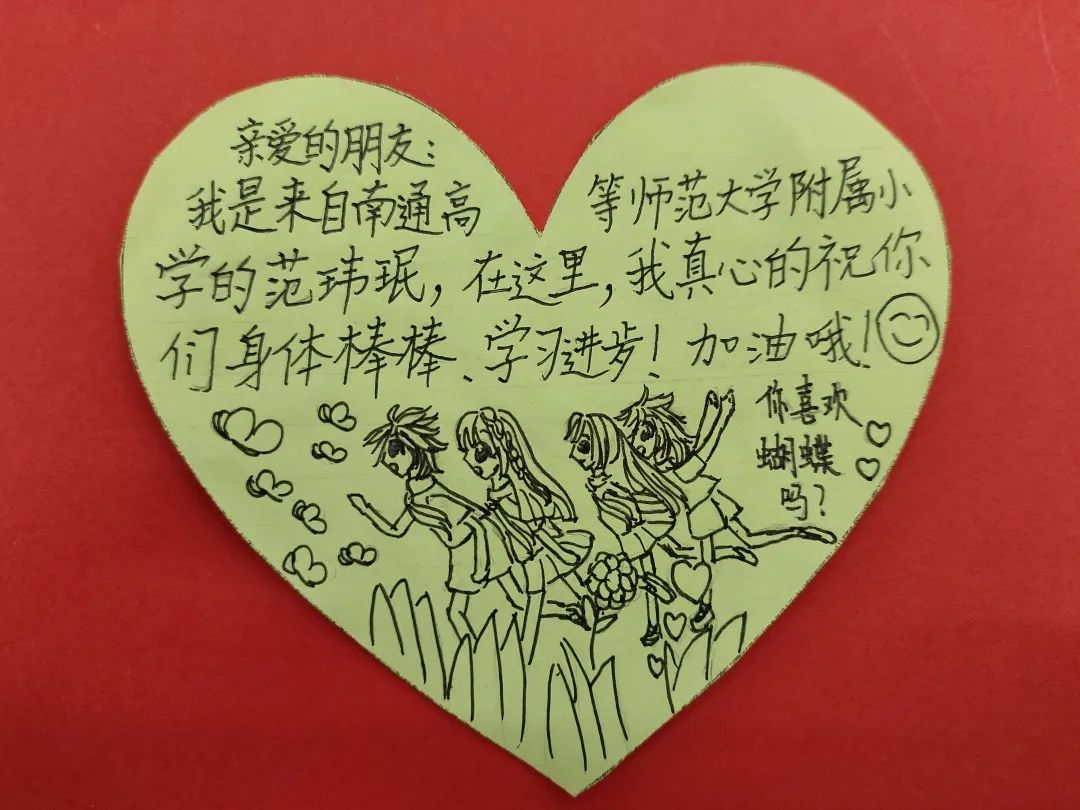 亲爱的朋友：
我是来自南通高等师范大学附属小
学的范玮珉，在这里，我真心的祝你
们身体棒棒、学习进步！加油哦！
你喜欢
蝴蝶
吗？